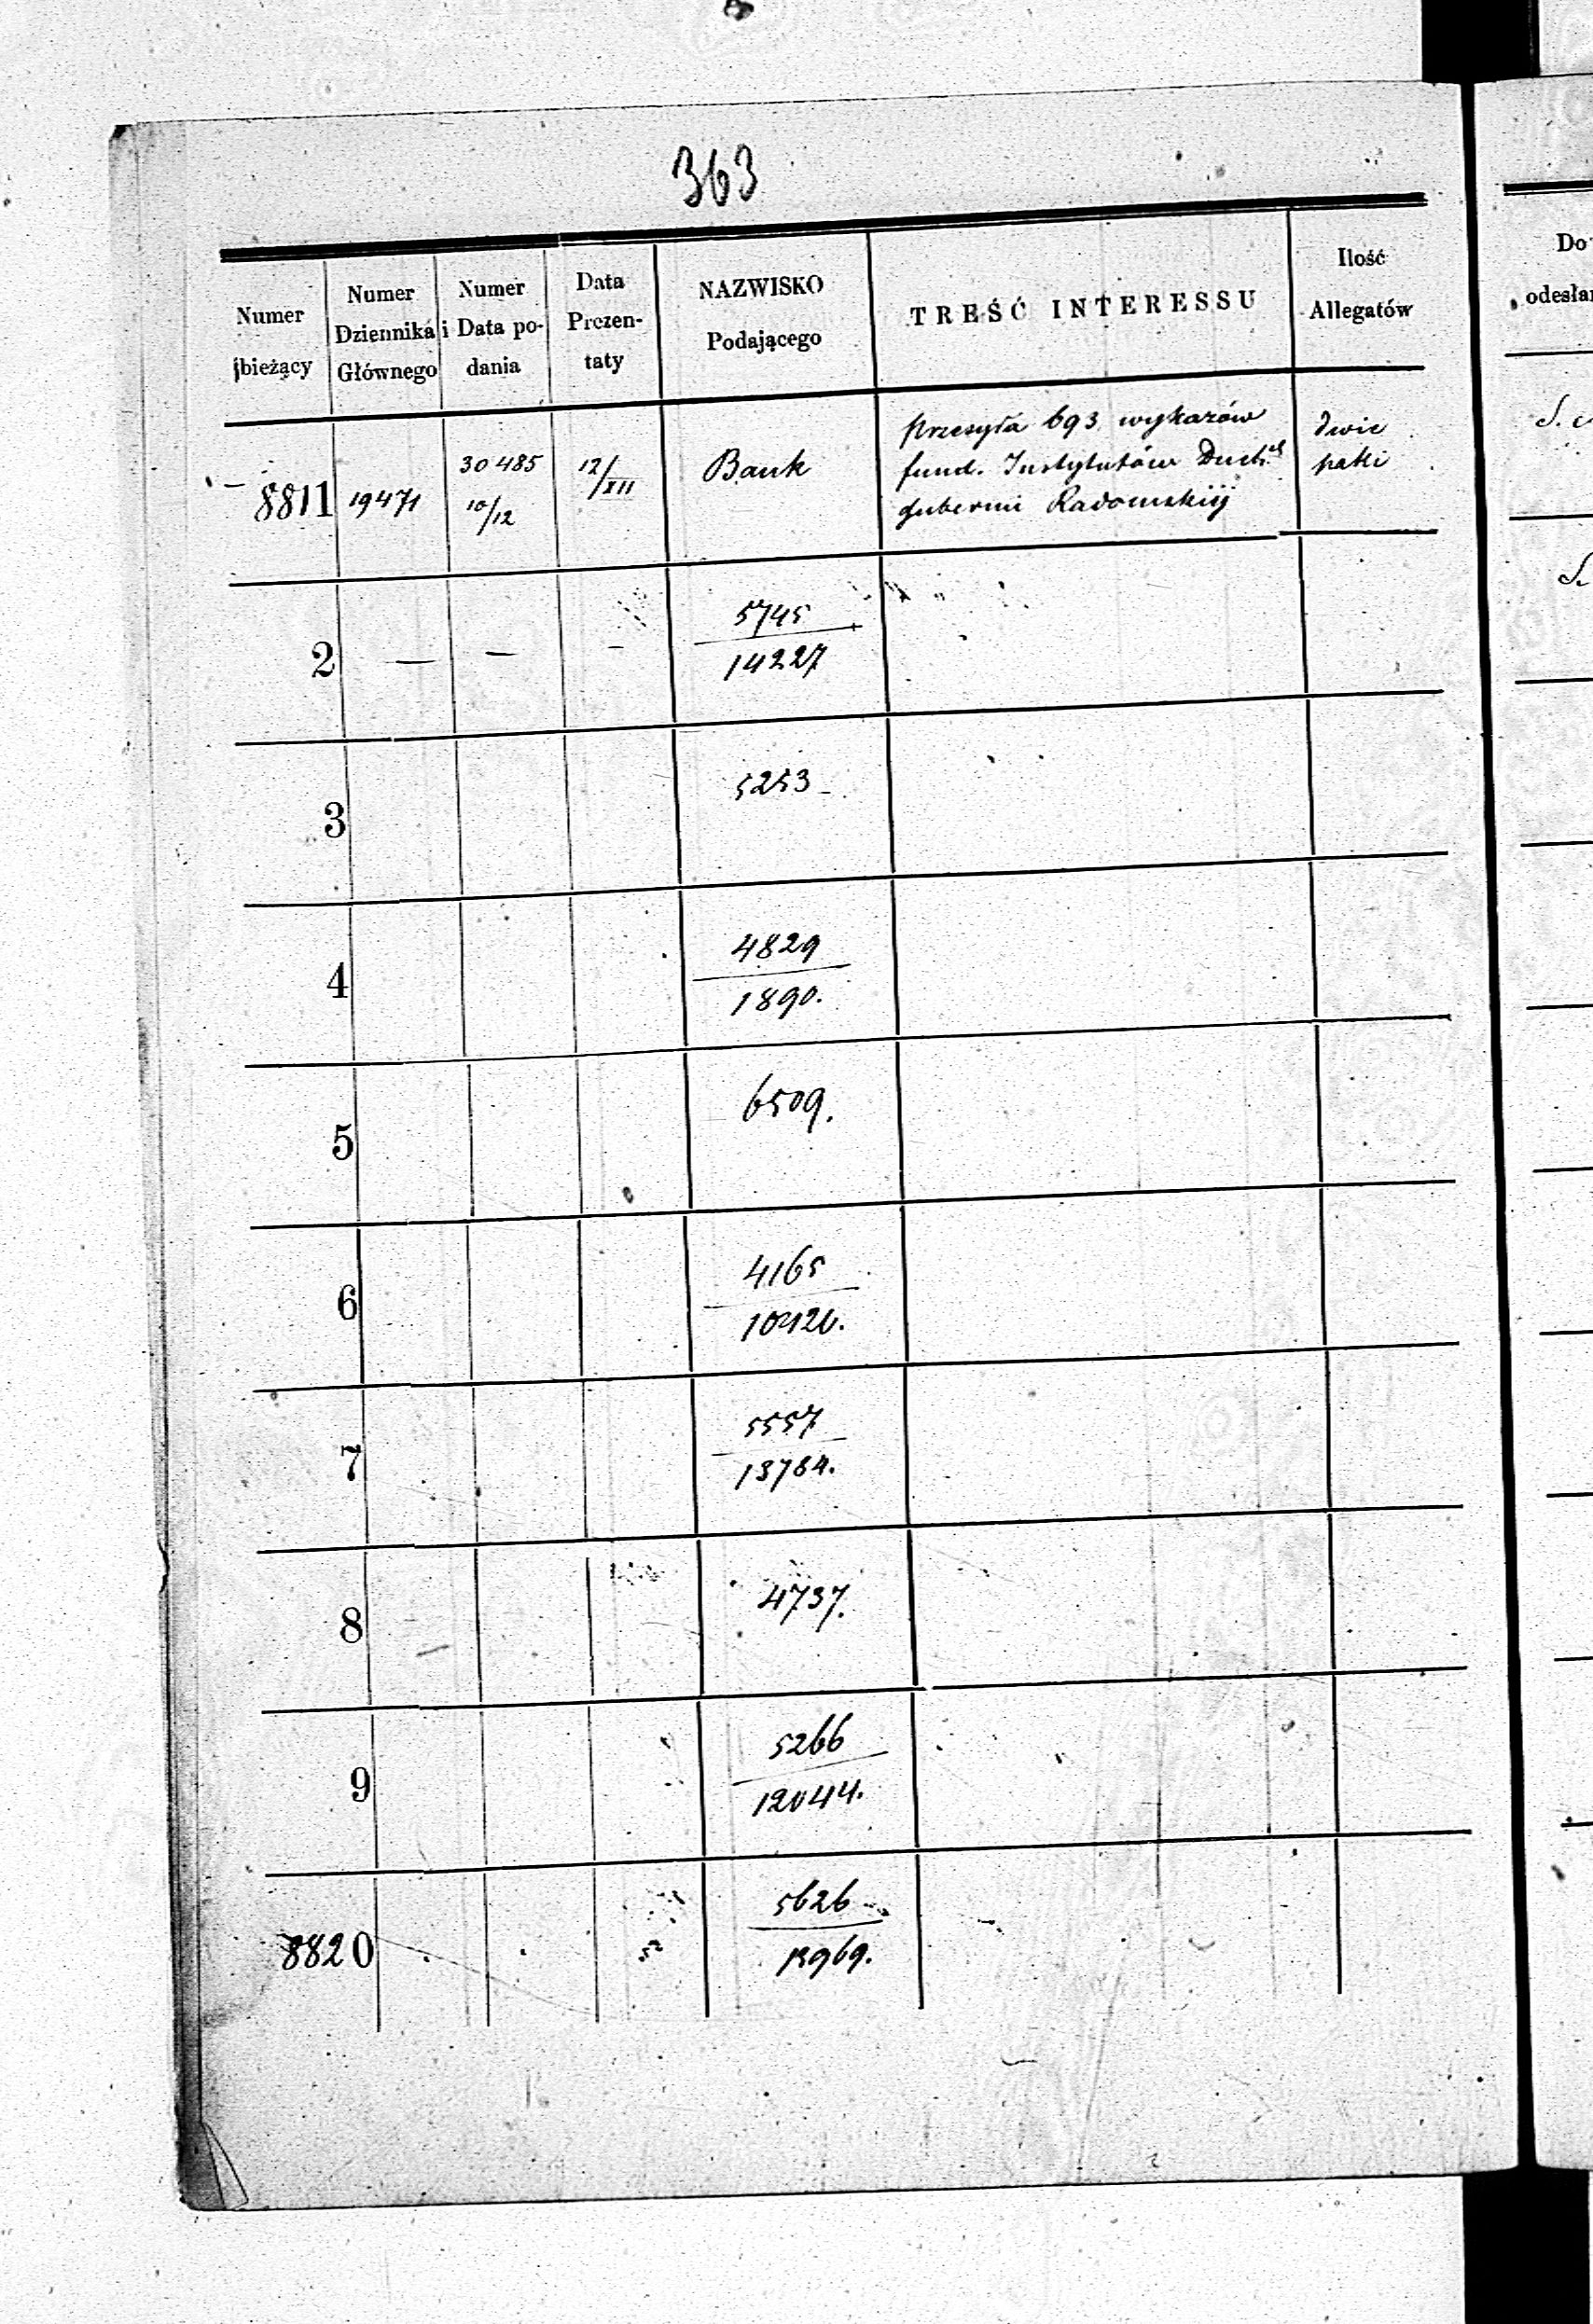 363
Numer bieżący
Numer Dziennika Głównego
Numer i Data podania
Data Prezentaty
NAZWISKO Podającego
TREŚĆ INTERESSU
Ilość Allegatów
Do
odesłan
8811
19471
30485
10/12
12/XII
Bank
przesyła 693 wykazów
fund. Instytutów Duch.
gubernii Radomskiij
dwie
paki
2
— — —
5745
14227
3
5253
4
4829
1890.
5
6509.
6
4165
7
5557
13784.
8
4737.
9
5266
12044.
8820
5626
13969.